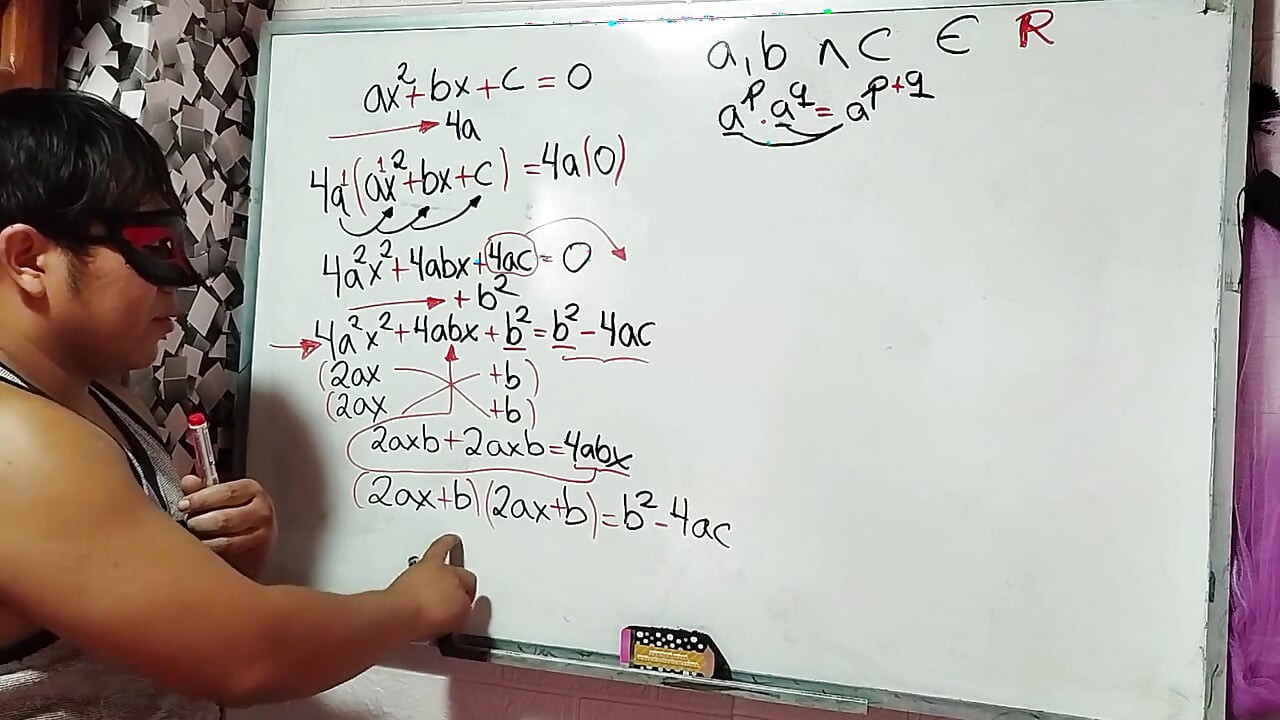 ax²+bx+c=0
4a
4a¹(a¹x²+bx+c)=4a(0)
4a²x²+4abx+4ac=0
+b²
4a²x²+4abx+b²=b²-4ac
(2ax +b)
(2ax +b)
2axb+2axb=4abx
(2ax+b)(2ax+b)=b²-4ac
a,b ∧ C ∈ R
a^p·a^q=a^p+q